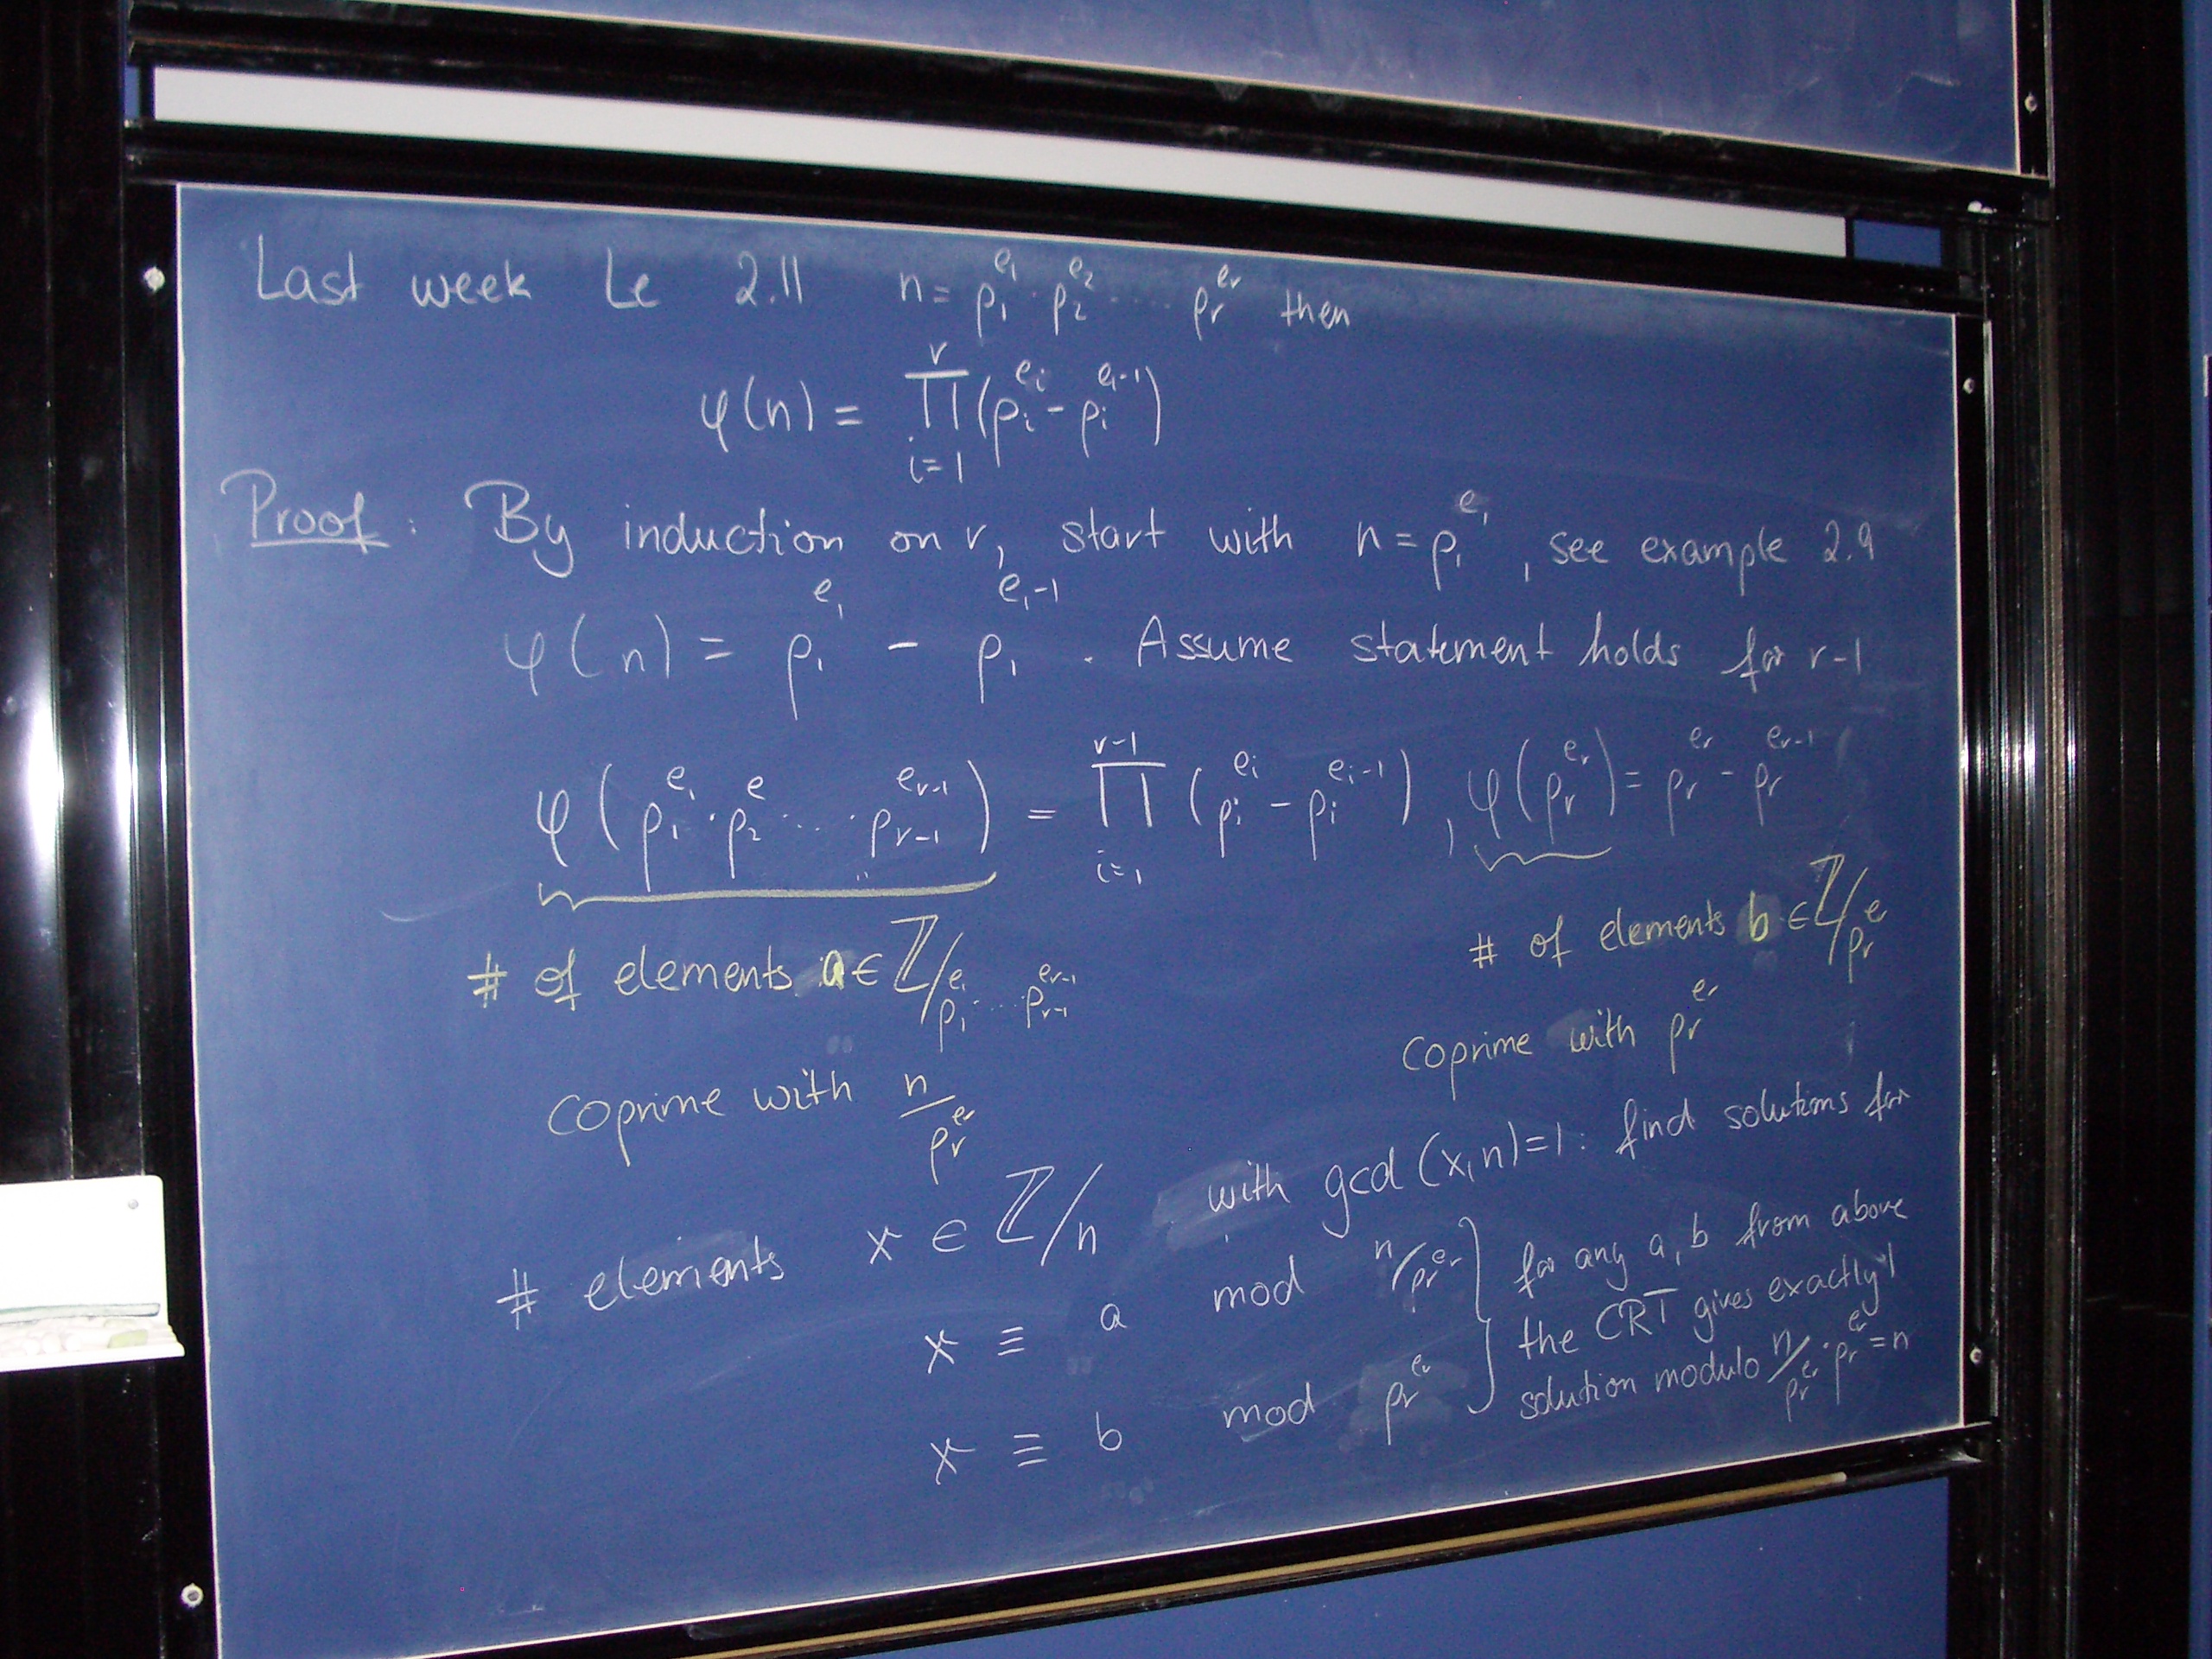 Last week Le 2.11 n = p₁^{e₁} · p₂^{e₂} · ... · p_r^{e_r} then
φ(n) = ∏_{i=1}^{r} (p_i^{e_i} - p_i^{e_i-1})
Proof: By induction on r, start with n = p₁^{e₁}, see example 2.9
φ(n) = p₁^{e₁} - p₁^{e₁-1}. Assume statement holds for r-1
φ(p₁^{e₁} · p₂^{e} · ... · p_{r-1}^{e_{r-1}}) = ∏_{i=1}^{r-1} (p_i^{e_i} - p_i^{e_i-1}), φ(p_r^{e_r}) = p_r^{e_r} - p_r^{e_r-1}
# of elements a ∈ ℤ/p₁^{e₁} ... p_{r-1}^{e_{r-1}}
coprime with n/p_r^{e_r}
# of elements b ∈ ℤ/p_r^{e}
coprime with p_r^{e_r}
# elements x ∈ ℤ/n with gcd(x,n)=1: find solutions for
x ≡ a mod n/p_r^{e_r}
x ≡ b mod p_r^{e_r}
for any a, b from above
the CRT gives exactly 1
solution modulo n/p_r^{e_r} · p_r^{e_r} = n